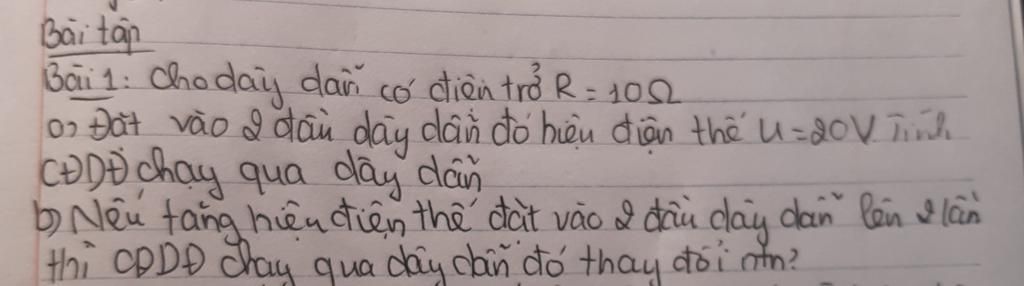 Bài tập
Bài 1: Cho dây dẫn có điện trở R = 10Ω
a) Đặt vào 2 đầu dây dẫn đó hiệu điện thế U = 20V. Tính
CĐDĐ chạy qua dây dẫn
b) Nếu tăng hiệu điện thế đặt vào 2 đầu dây dẫn lên 2 lần
thì CĐDĐ chạy qua dây dẫn đó thay đổi ntn?